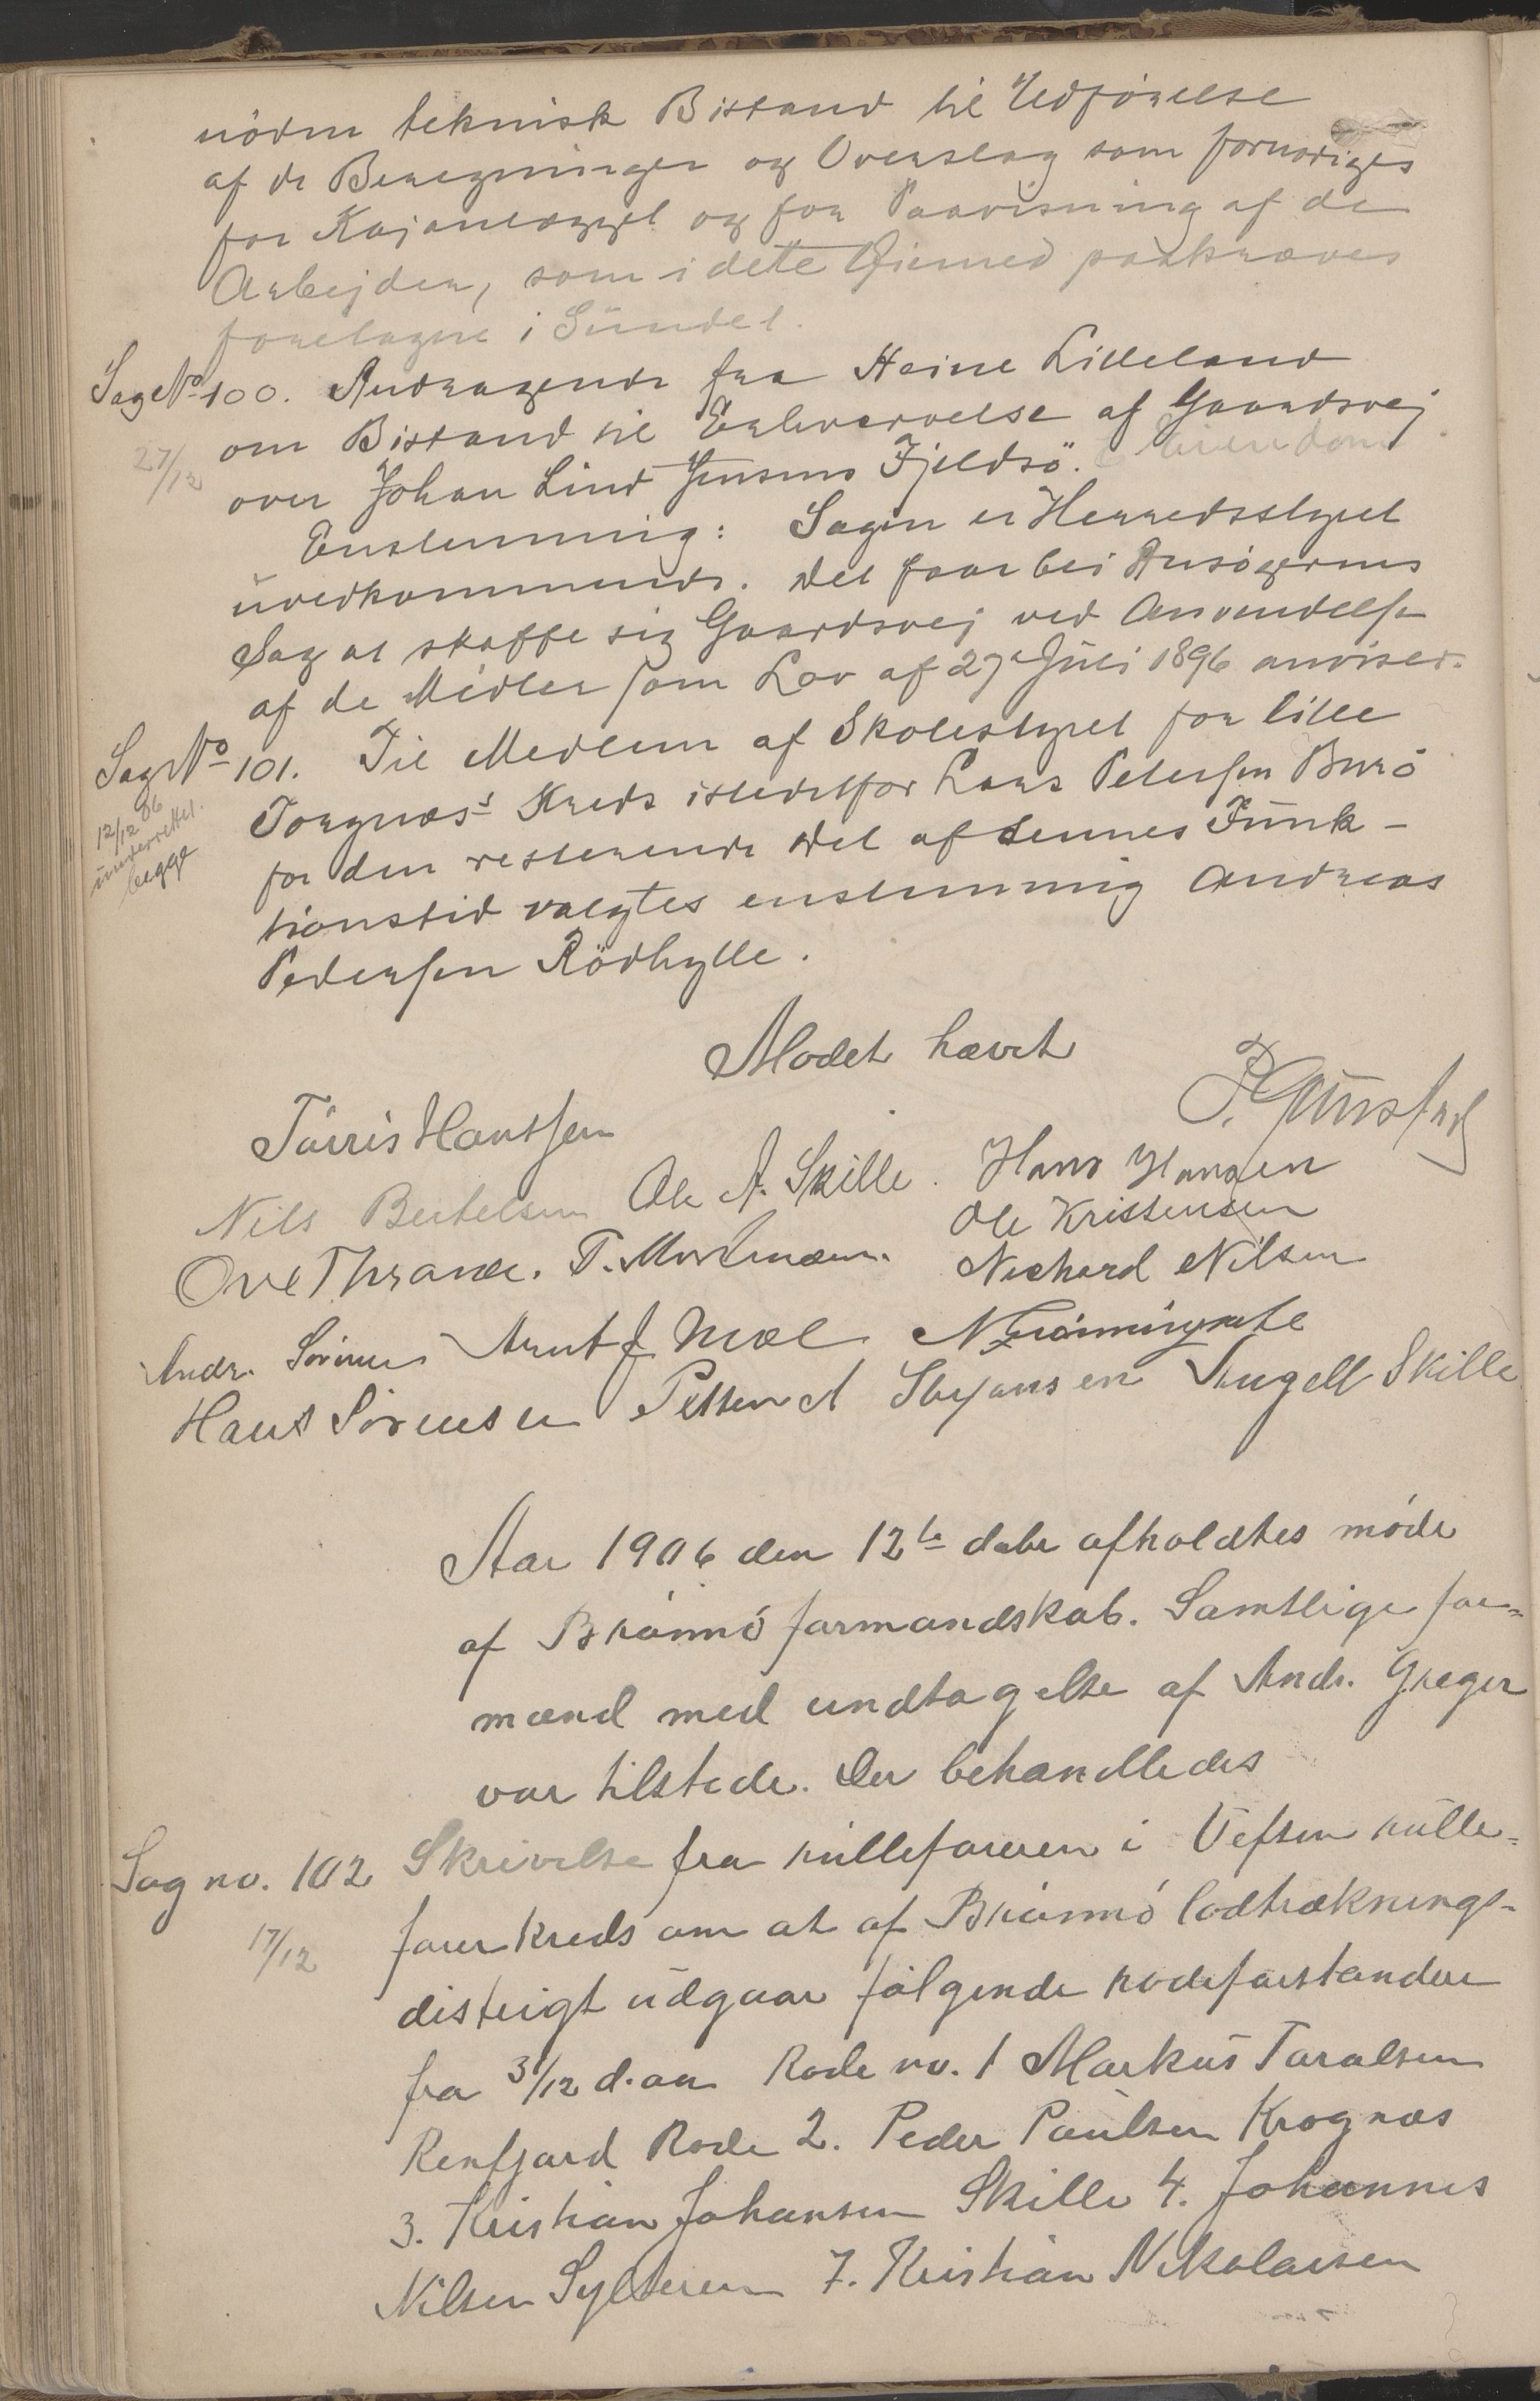 nöden teknisk Bistand til Udförelse
af de Beregninger og Overslag som fornodiges
for Kajanlægget og for Paavisning af de
Arbejder, som i dette Øiemed paakræves
foretagne i Sundet.
Sag No 100. Andragende fra Heine Lilleland
om Bistand til Erhvervelse af Gaardsvej
27/12
over Johan Lind Jensens Fjeldsö. Eiendom
Enstemmig: Sagen er Herredsstyret
uvedkommende. Det faar bli Ansögerens
Sag at skaffe sig Gaardsvej ved Anvendelse
af de Midler som Lov af 27de Juli 1896 anviser.
Sag No 101. Til Medlem af Skolestyret for lille
Torgnæs's Kreds istedetfor Lars Petersen Burö
12/12 06
underrettet.
begge
for den resterende Del af dennes Funk-
tionstid valgtes enstemmig Andreas
Pedersen Rödhylle.
Mødet hævet
Tørris Hantsen
Nils Bertelsen Ole A. Skille. Hans Hansen
Ole Kristensen
Ove Thrane.
Richard Nilsen
Andr. Sörnes Arnt J Moe
Hans Sørensen Petter A Styansen Angell Skille
Aar 1906 den 12te dcbr afholdtes møde
af Brønnø formandskab. Samtlige for-
mænd med undtagelse af Andr. Greger
var tilstede. Der behandledes
Sag no. 102 Skrivelse fra rulleføreren i Vefsen rulle-
17/12
fører kreds om at af Brønnø lodtræknings-
distrigt udgaar følgende rodeforstandere
fra 31/12 d.aa. Rode no. 1 Markus Taralsen
Renfjord Rode 2. Peder Paulsen Krognæs
3. Kristian Johansen Skille 4. Johannes
Nilsen Sylteren 7. Kristian Nikolaisen